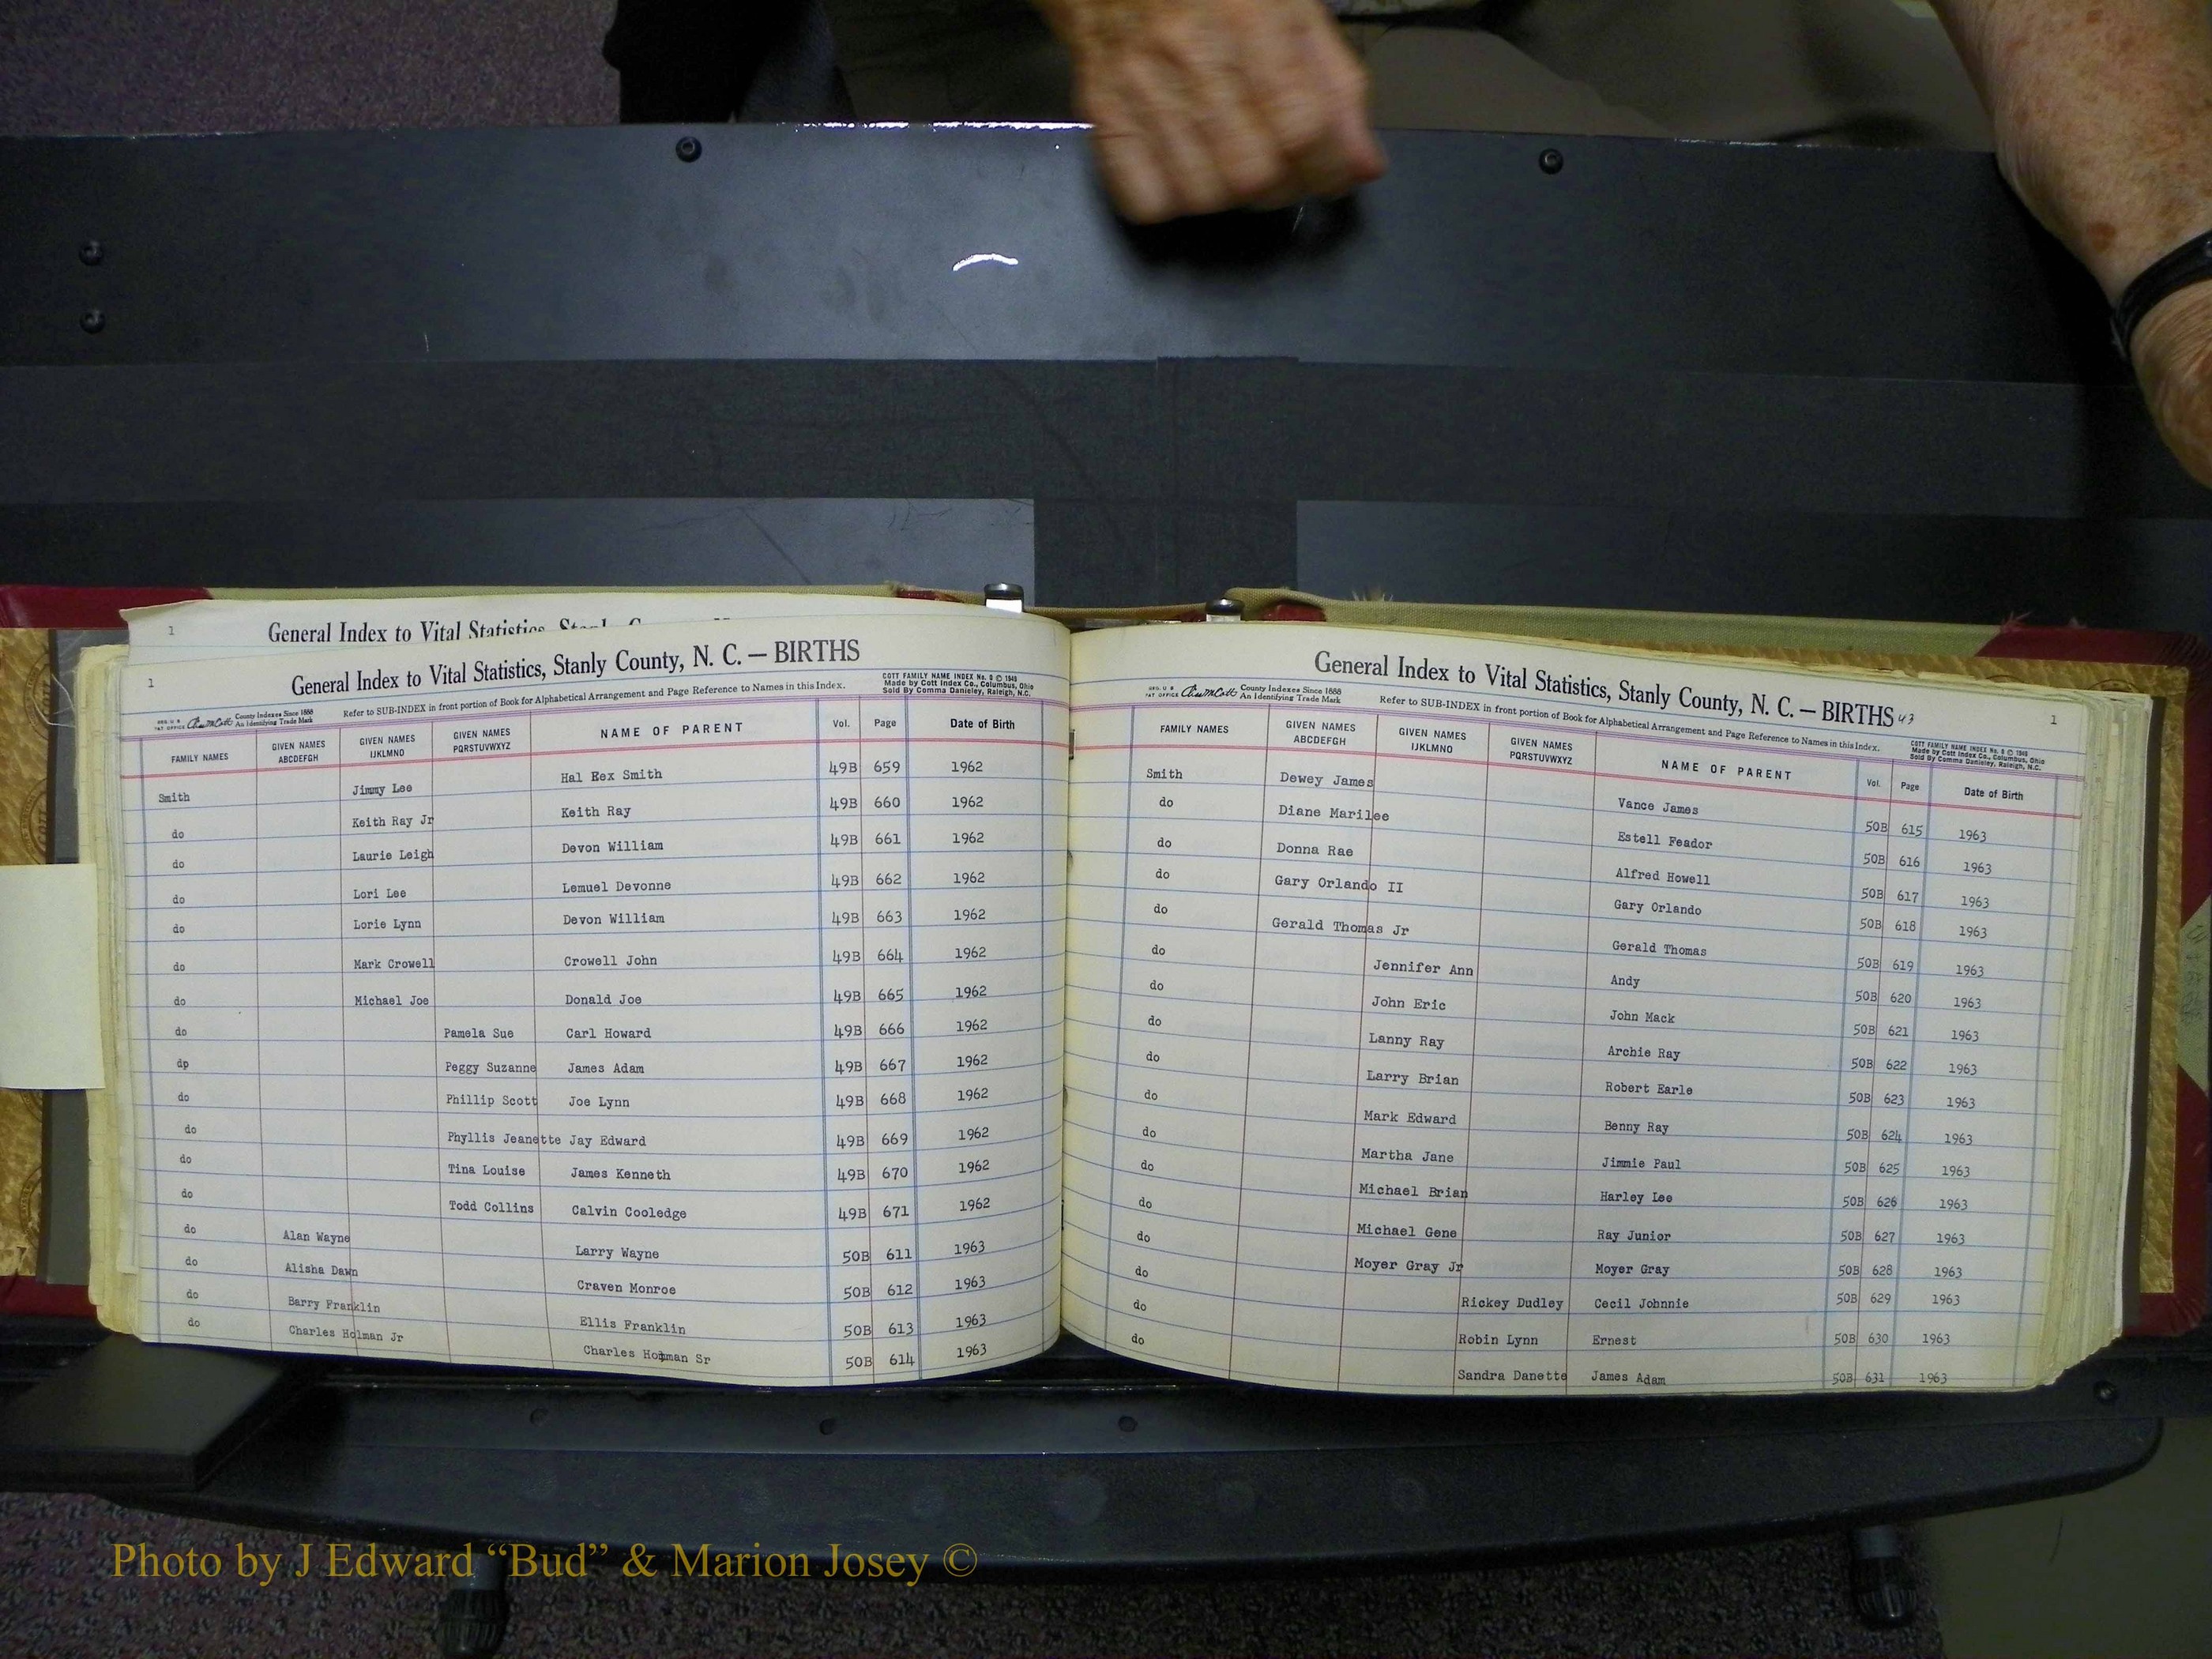 1
General Index to Vital Statistics,
1
General Index to Vital Statistics, Stanly County, N. C. — BIRTHS
County Indexes Since 1888
An Identifying Trade Mark
Refer to SUB-INDEX in front portion of Book for Alphabetical Arrangement and Page Reference to Names in this Index.
COTT FAMILY NAME INDEX No. 8 © 1949
Made by Cott Index Co., Columbus, Ohio
Sold By Comma Danieley, Raleigh, N.C.
FAMILY NAMES GIVEN NAMES ABCDEFGH GIVEN NAMES IJKLMNO GIVEN NAMES PQRSTUVWXYZ NAME OF PARENT Vol. Page Date of Birth
Smith Jimmy Lee Hal Eex Smith 49B 659 1962
do Keith Ray Jr Keith Ray 49B 660 1962
do Laurie Leigh Devon William 49B 661 1962
do Lori Lee Lemuel Devonne 49B 662 1962
do Lorie Lynn Devon William 49B 663 1962
do Mark Crowell Crowell John 49B 664 1962
do Michael Joe Donald Joe 49B 665 1962
do Pamela Sue Carl Howard 49B 666 1962
dp Peggy Suzanne James Adam 49B 667 1962
do Phillip Scott Joe Lynn 49B 668 1962
do Phyllis Jeanette Jay Edward 49B 669 1962
do Tina Louise James Kenneth 49B 670 1962
do Todd Collins Calvin Cooledge 49B 671 1962
do Alan Wayne Larry Wayne 50B 611 1963
do Alisha Dawn Craven Monroe 50B 612 1963
do Barry Franklin Ellis Franklin 50B 613 1963
do Charles Holman Jr Charles Holman Sr 50B 614 1963
General Index to Vital Statistics, Stanly County, N. C. — BIRTHS 43
1
County Indexes Since 1888
An Identifying Trade Mark
Refer to SUB-INDEX in front portion of Book for Alphabetical Arrangement and Page Reference to Names in this Index.
COTT FAMILY NAME INDEX No. 8 © 1949
Made by Cott Index Co., Columbus, Ohio
Sold By Comma Danieley, Raleigh, N.C.
FAMILY NAMES GIVEN NAMES ABCDEFGH GIVEN NAMES IJKLMNO GIVEN NAMES PQRSTUVWXYZ NAME OF PARENT Vol. Page Date of Birth
Smith Dewey James Vance James 50B 615 1963
do Diane Marilee Estell Feador 50B 616 1963
do Donna Rae Alfred Howell 50B 617 1963
do Gary Orlando II Gary Orlando 50B 618 1963
do Gerald Thomas Jr Gerald Thomas 50B 619 1963
do Jennifer Ann Andy 50B 620 1963
do John Eric John Mack 50B 621 1963
do Lanny Ray Archie Ray 50B 622 1963
do Larry Brian Robert Earle 50B 623 1963
do Mark Edward Benny Ray 50B 624 1963
do Martha Jane Jimmie Paul 50B 625 1963
do Michael Brian Harley Lee 50B 626 1963
do Michael Gene Ray Junior 50B 627 1963
do Moyer Gray Jr Moyer Gray 50B 628 1963
do Rickey Dudley Cecil Johnnie 50B 629 1963
do Robin Lynn Ernest 50B 630 1963
do Sandra Danette James Adam 50B 631 1963
Photo by J Edward “Bud” & Marion Josey ©